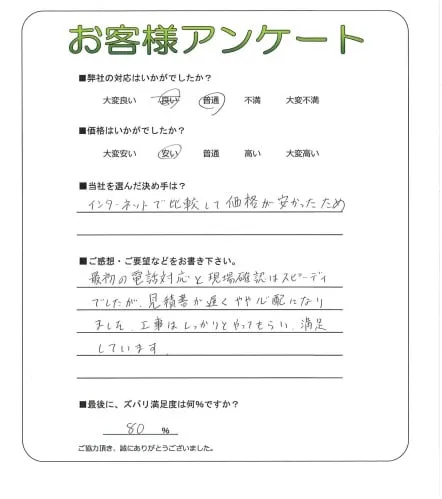 お客様アンケート
■弊社の対応はいかがでしたか？
大変良い 良い 普通 不満 大変不満
■価格はいかがでしたか？
大変安い 安い 普通 高い 大変高い
■当社を選んだ決め手は？
インターネットで比較して価格が安かったため
■ご感想・ご要望などをお書き下さい。
最初の電話対応と現場確認はスピーディ
でしたが、見積書が遅くやや心配になり
ました。工事はしっかりとやってもらい、満足
しています。
■最後に、ズバリ満足度は何%ですか？
80 %
ご協力頂き、誠にありがとうございました。